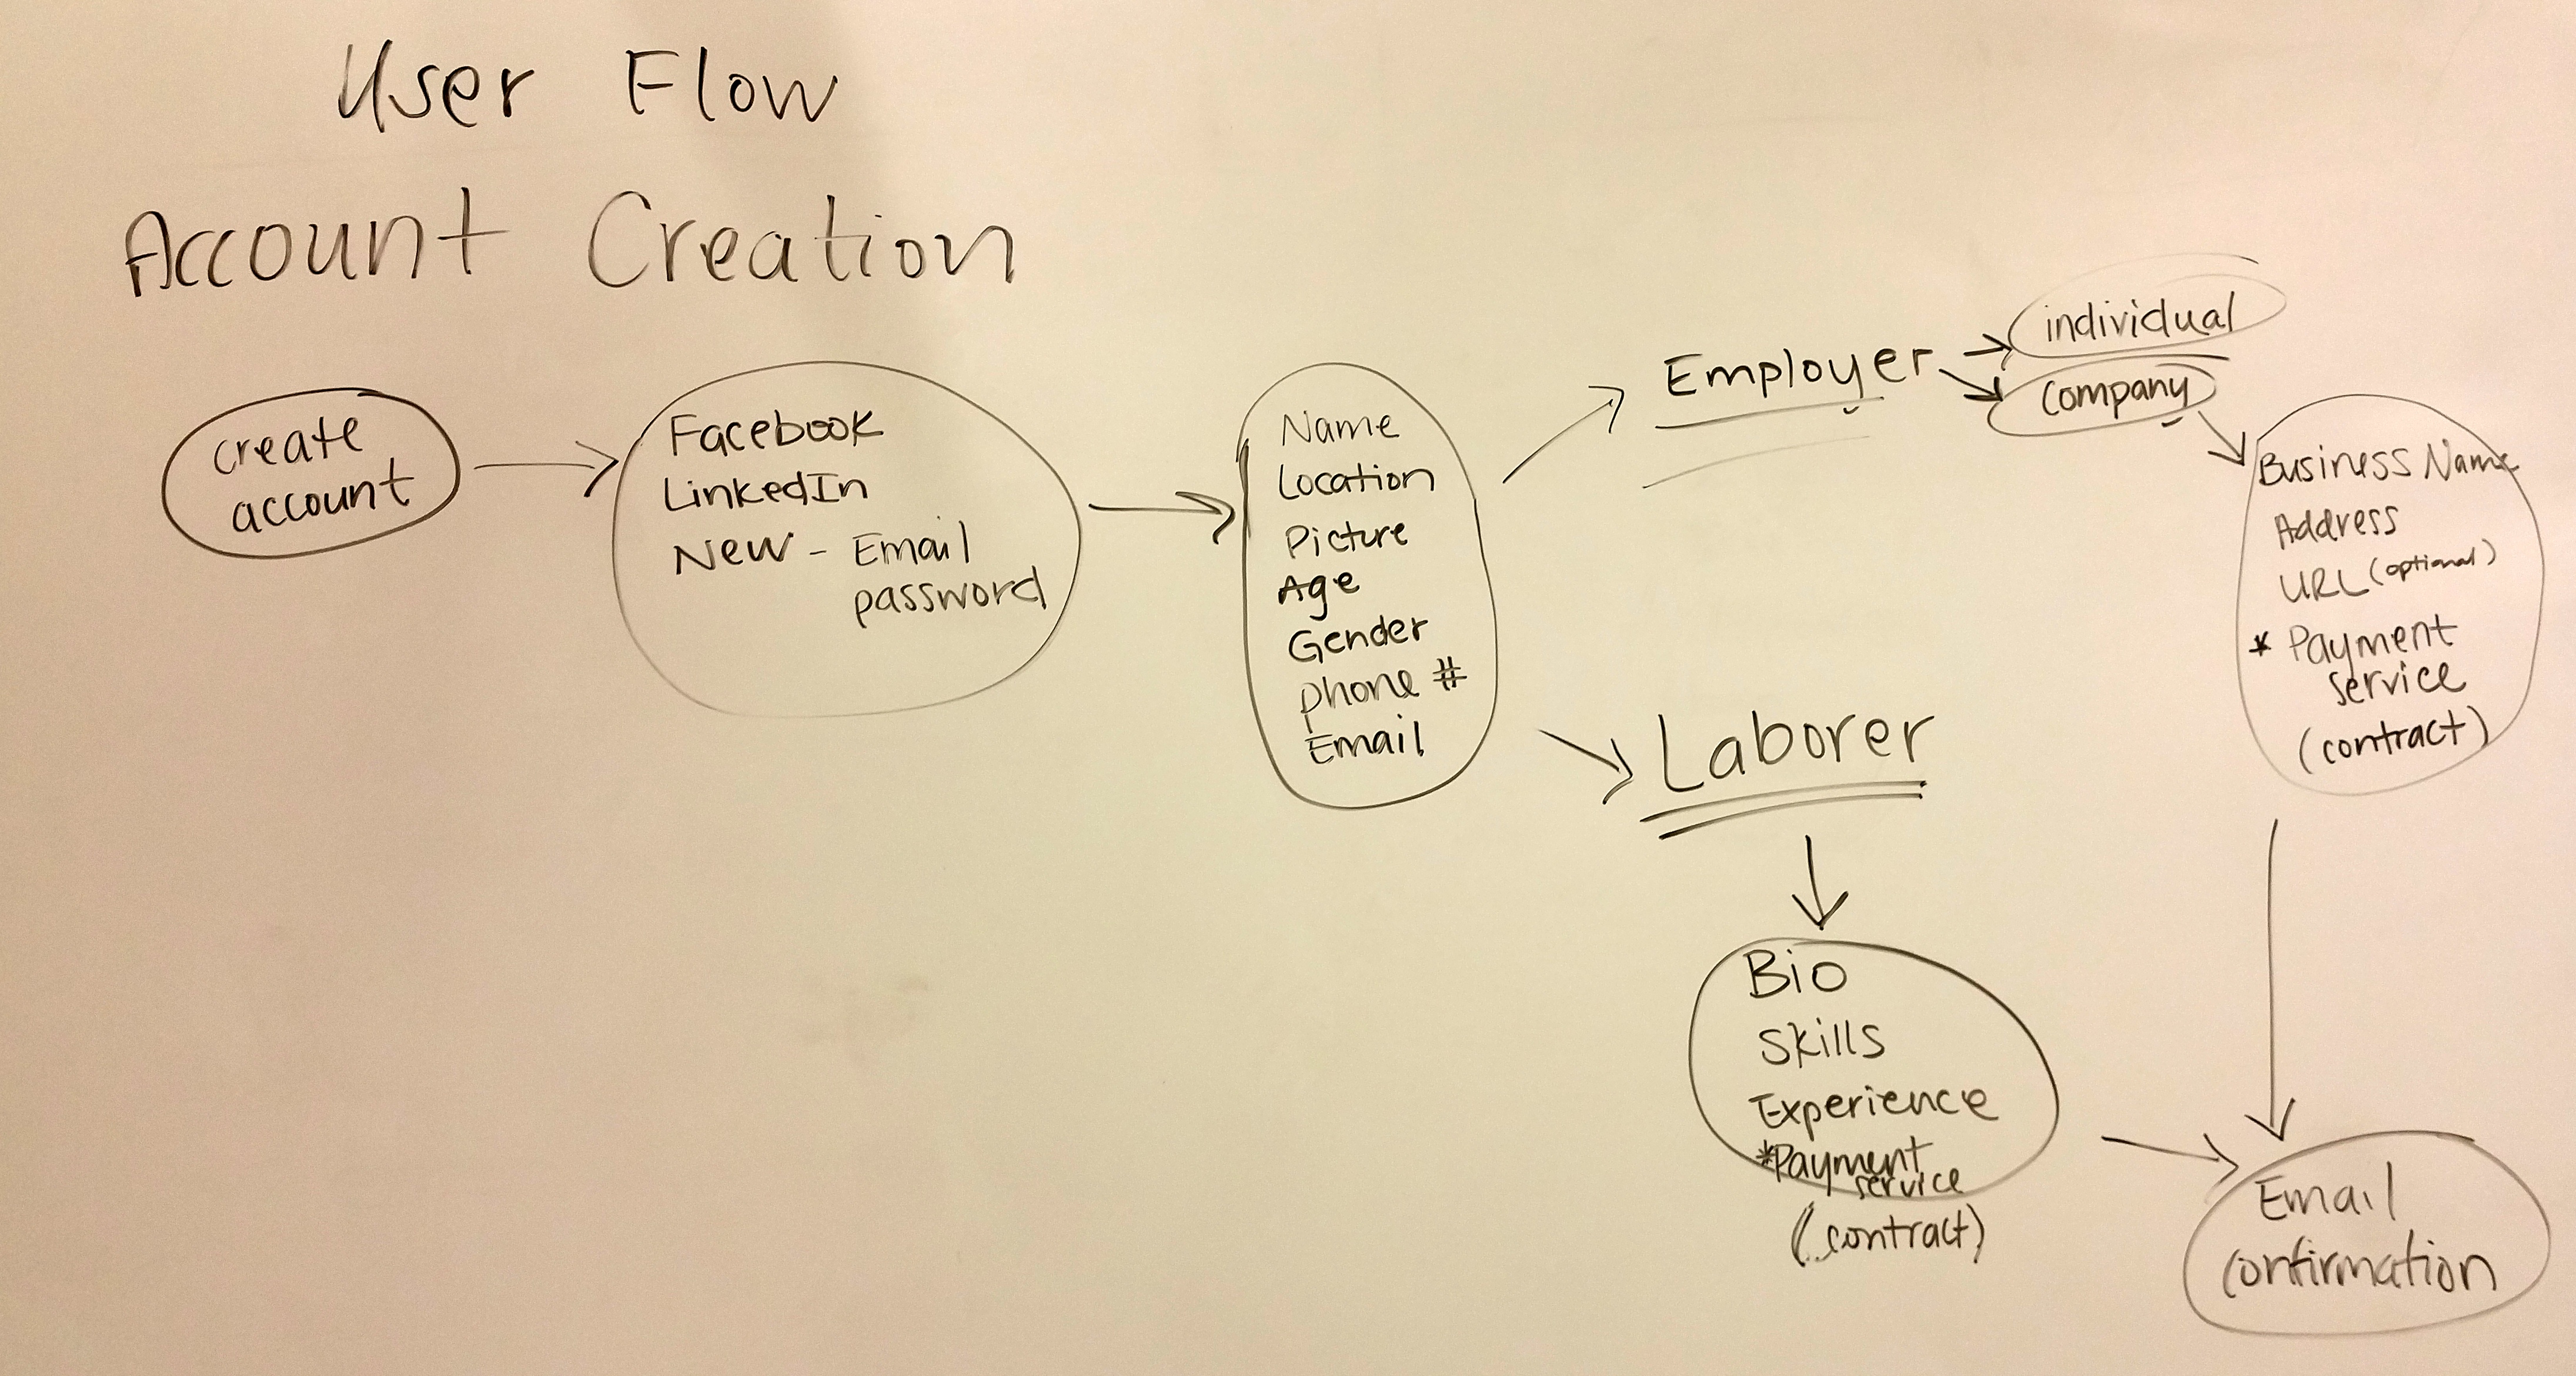 User Flow
Account Creation
create
account
Facebook
LinkedIn
New - Email
password
Name
Location
Picture
Age
Gender
phone #
Email
Employer
individual
company
Business Name
Address
URL (optional)
* Payment
service
(contract)
Laborer
Bio
Skills
Experience
*Payment
service
(contract)
Email
Confirmation